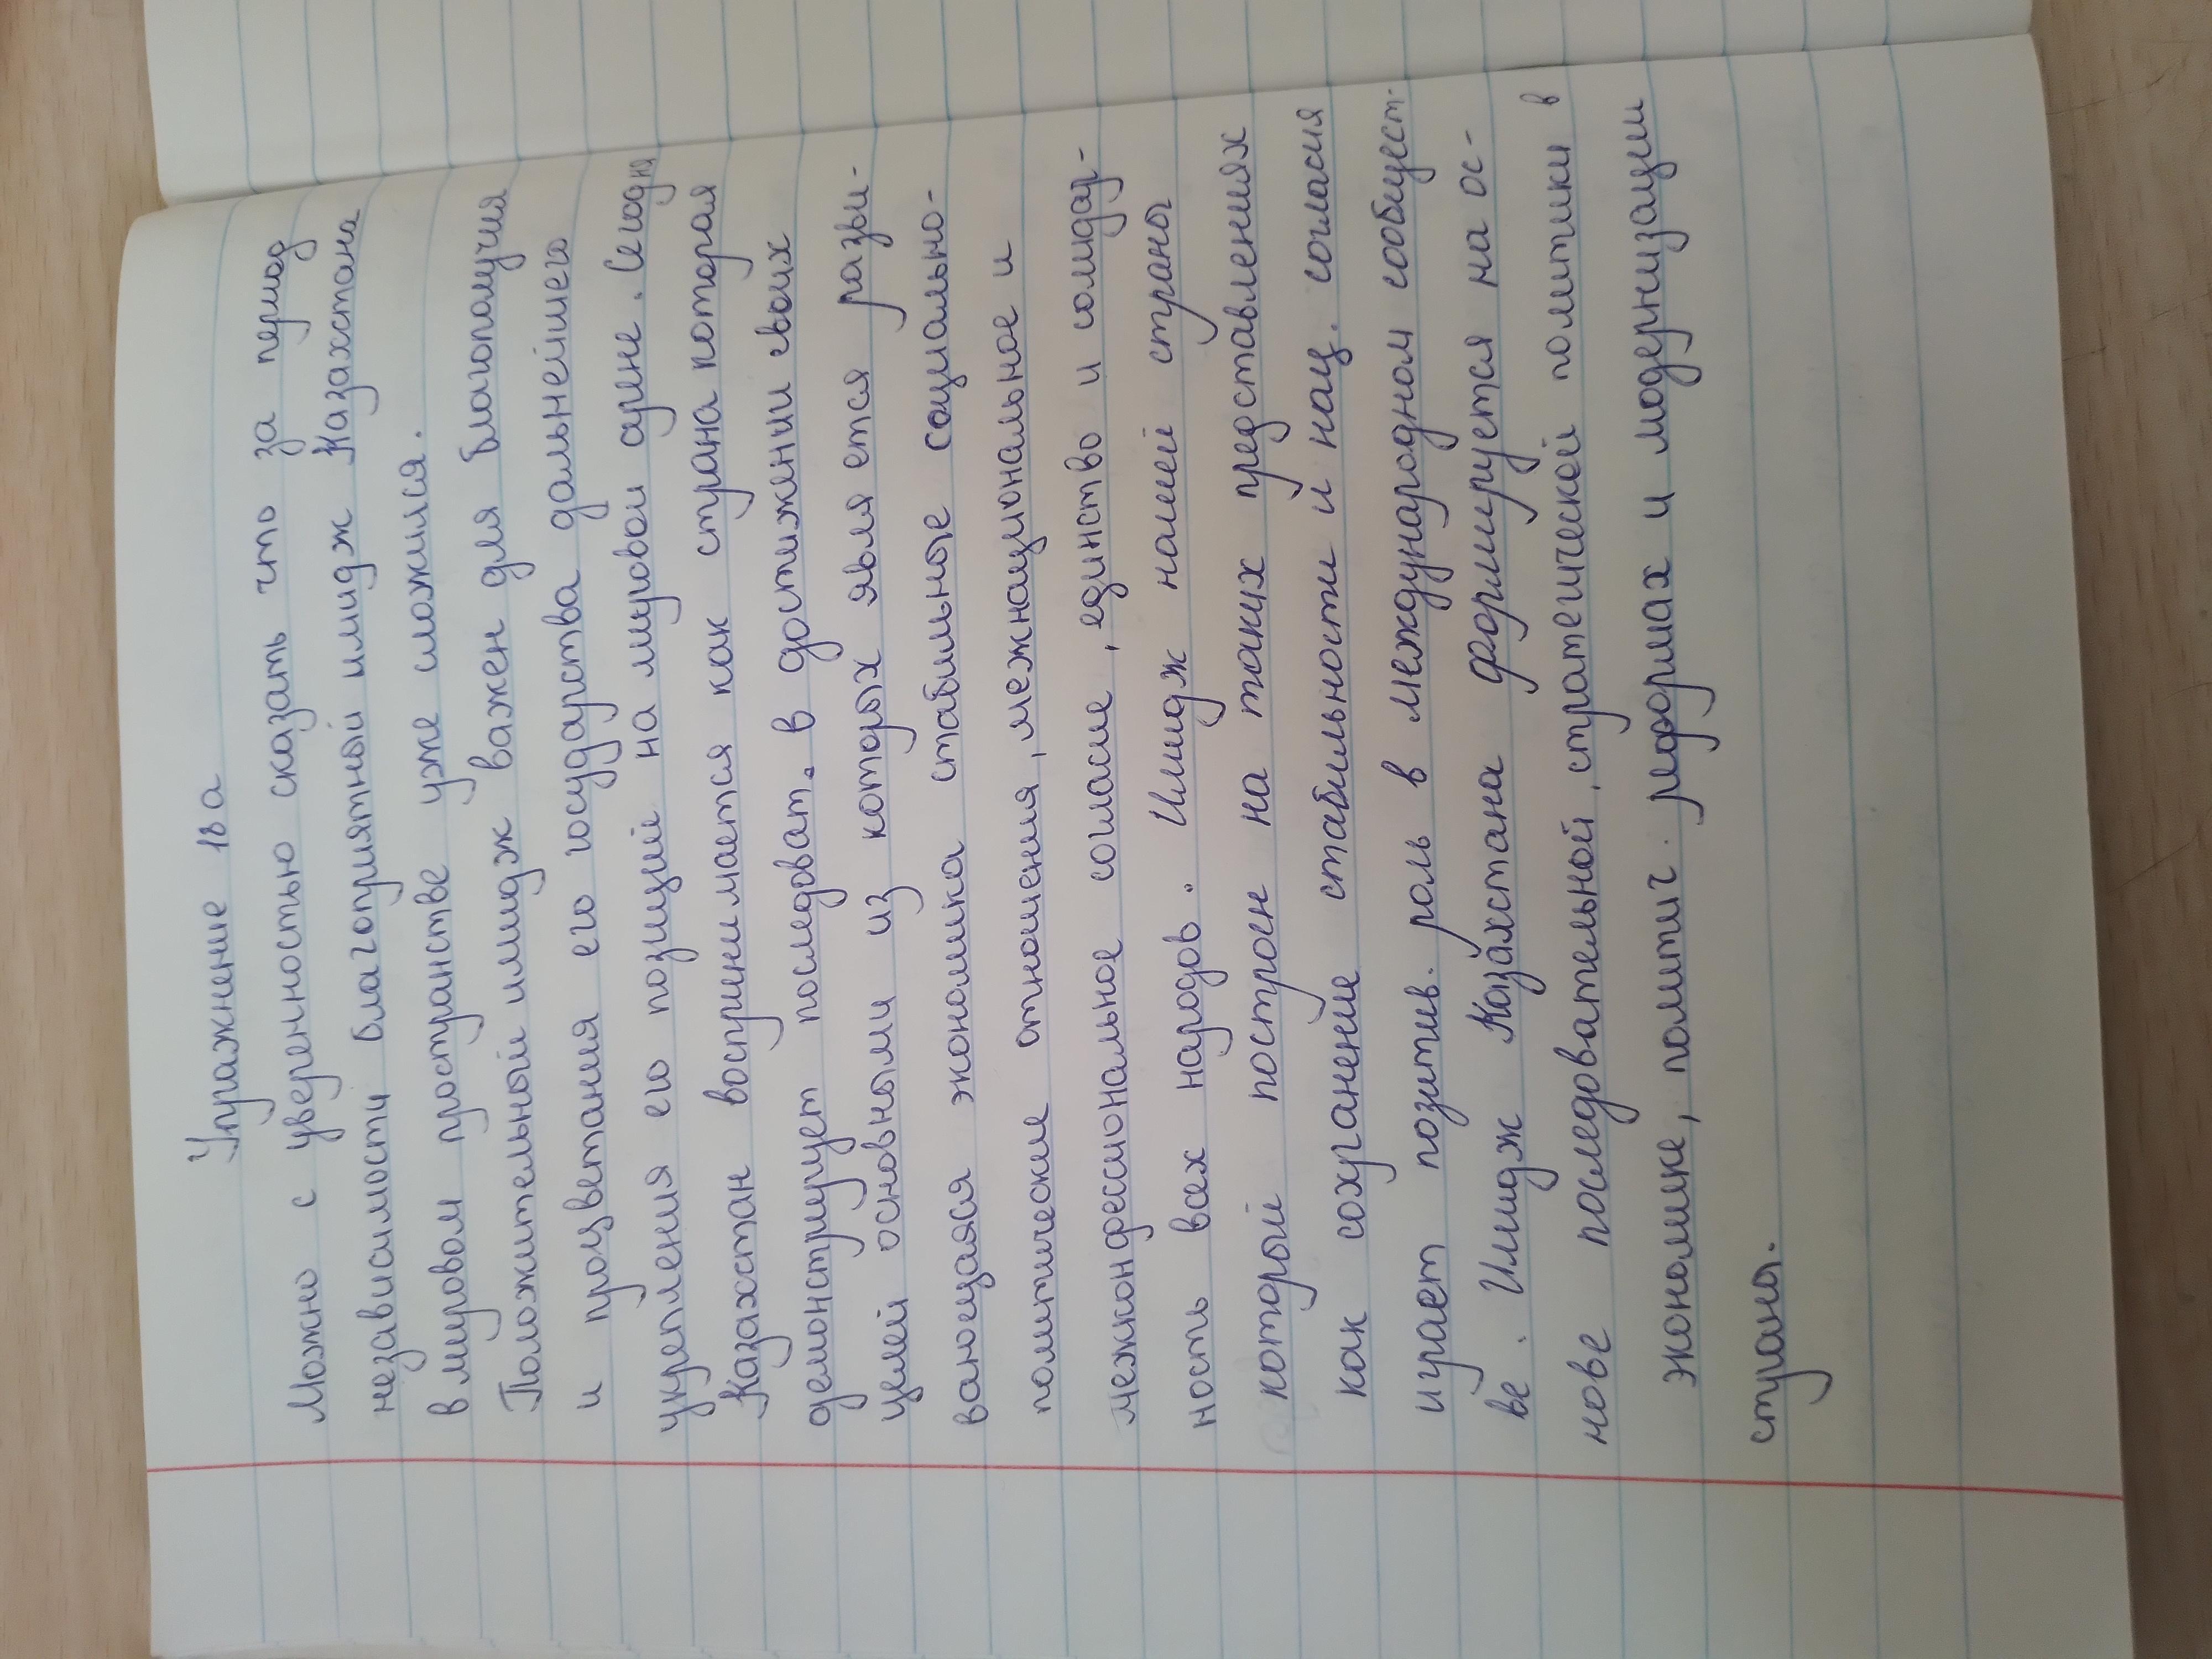 Упражнение 18а
Можно с уверенностью сказать что за период
независимости благоприятный имидж Казахстана
в мировом пространстве уже сложился.
Положительный имидж важен для благополучия
и процветания его государства дальнейшего
укрепления его позиций на мировой арене. Сегодня
Казахстан воспринимается как страна которая
демонстрирует последоват. в достижении своих
целей основными из которых является разви-
вающаяся экономика стабильное социально-
политические отношения, межнациональное и
межконфессиональное согласие, единство и солидар-
ность всех народов. Имидж нашей страны
который построен на таких представлениях
как сохранение стабильности и нац. согласия
играет позитив. роль в международном сообщест-
ве. Имидж Казахстана формируется на ос-
нове последовательной, стратегической политики в
экономике, политич. реформах и модернизации
страны.